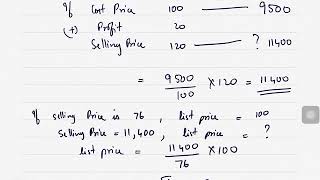 If Cost Price 100 —— 9500
(+) Profit 20
Selling Price 120 —— ? 11400
= 9500/100 × 120 = 11400
If selling Price is 76, list price = 100
Selling Price = 11,400, list price = ?
list price = 11400/76 × 100